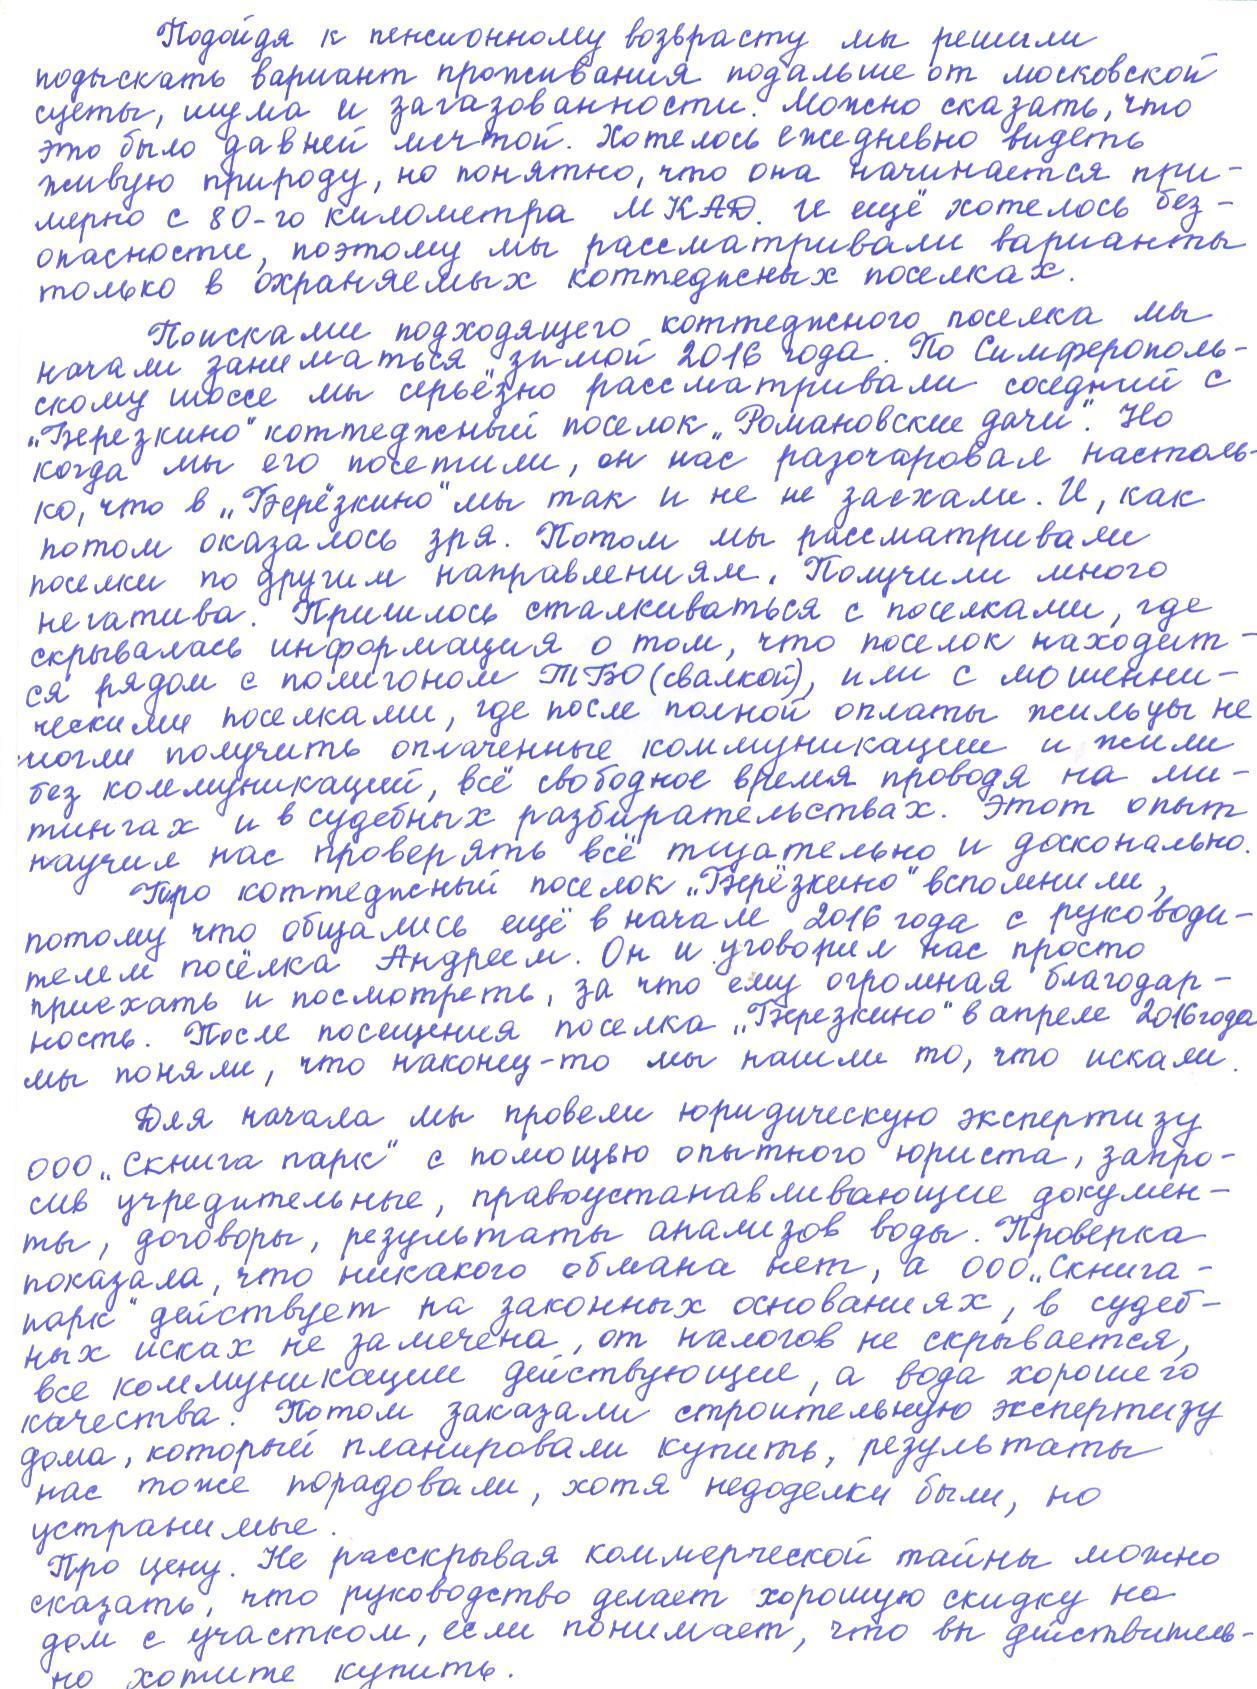 Подойдя к пенсионному возврасту мы решили
подыскать вариант проживания подальше от московской
суеты, шума и загазованности. Можно сказать, что
это было давней мечтой. Хотелось ежедневно видеть
живую природу, но понятно, что она начинается при-
мерно с 80-го километра МКАД. И ещё хотелось без-
опасности, поэтому мы рассматривали варианты
только в охраняемых коттеджных поселках.
Поисками подходящего коттеджного поселка мы
начали заниматься зимой 2016 года. По Симферополь-
скому шоссе мы серьёзно рассматривали соседний с
„Березкино" коттеджный поселок „Романовские дачи". Но
когда мы его посетили, он нас разочаровал настоль-
ко, что в „Берёзкино" мы так и не не заехали. И, как
потом оказалось зря. Потом мы рассматривали
поселки по другим направлениям. Получили много
негатива. Пришлось сталкиваться с поселками, где
скрывалась информация о том, что поселок находит-
ся рядом с полигоном ТБО (свалкой), или с мошенни-
ческими поселками, где после полной оплаты жильцы не
могли получить оплаченные коммуникации и жили
без коммуникаций, всё свободное время проводя на ми-
тингах и в судебных разбирательствах. Этот опыт
научил нас проверять всё тщательно и досконально.
Про коттеджный поселок „Берёзкино" вспомнили,
потому что общались ещё в начале 2016 года с руководи-
телем посёлка Андреем. Он и уговорил нас просто
приехать и посмотреть, за что ему огромная благодар-
ность. После посещения поселка „Березкино" в апреле 2016 года
мы поняли, что наконец-то мы нашли то, что искали.
Для начала мы провели юридическую экспертизу
ООО „Скнига парк" с помощью опытного юриста, запро-
сив учредительные, правоустанавливающие докумен-
ты, договоры, результаты анализов воды. Проверка
показала, что никакого обмана нет, а ООО „Скнига-
парк" действует на законных основаниях, в судеб-
ных исках не замечена, от налогов не скрывается,
все коммуникации действующие, а вода хорошего
качества. Потом заказали строительную экспертизу
дома, который планировали купить, результаты
нас тоже порадовали, хотя недоделки были, но
устранимые.
Про цену. Не расскрывая коммерческой тайны можно
сказать, что руководство делает хорошую скидку на
дом с участком, если понимает, что вы действитель-
но хотите купить.